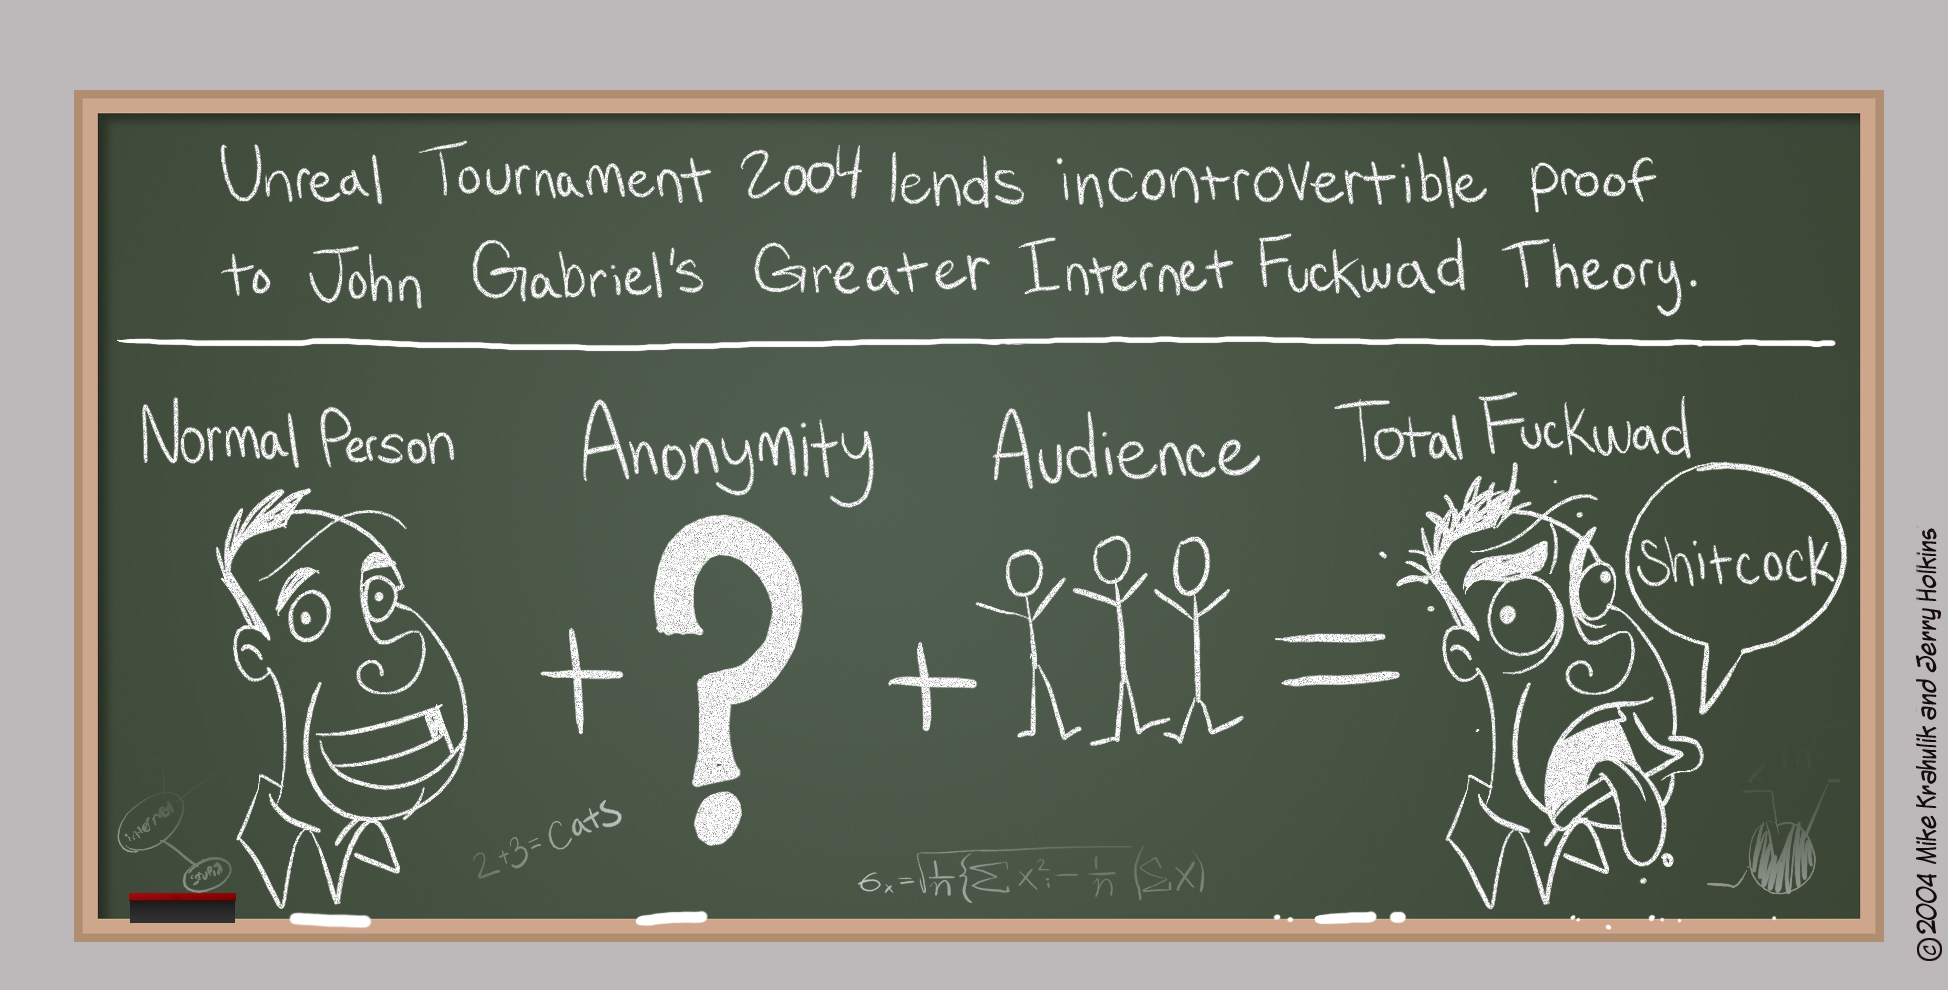 Unreal Tournament 2004 lends incontrovertible proof
to John Gabriel's Greater Internet Fuckwad Theory.
Normal Person
Anonymity
Audience
Total Fuckwad
+
?
+
=
Shitcock
internet
stupid
2+3=Cats
6x=√1/n{∑x²i-1/n(∑x)
©2004 Mike Krahulik and Jerry Holkins